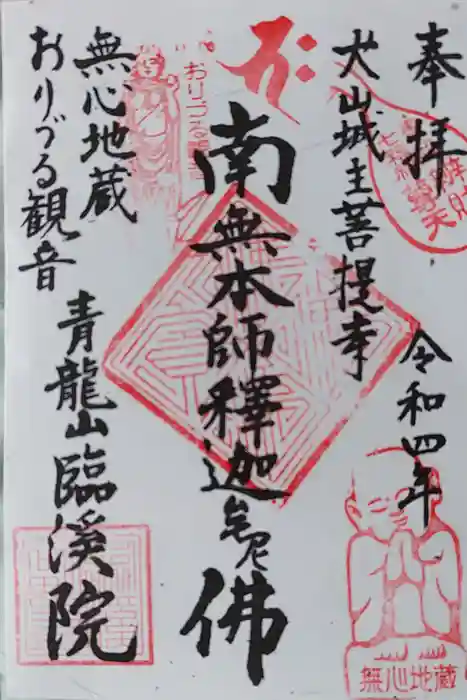 奉拝 令和四年
犬山城主菩提寺
南無本師釋迦牟尼佛
無心地蔵
おりづる観音
青龍山臨溪院
おりづる観音
無心地蔵